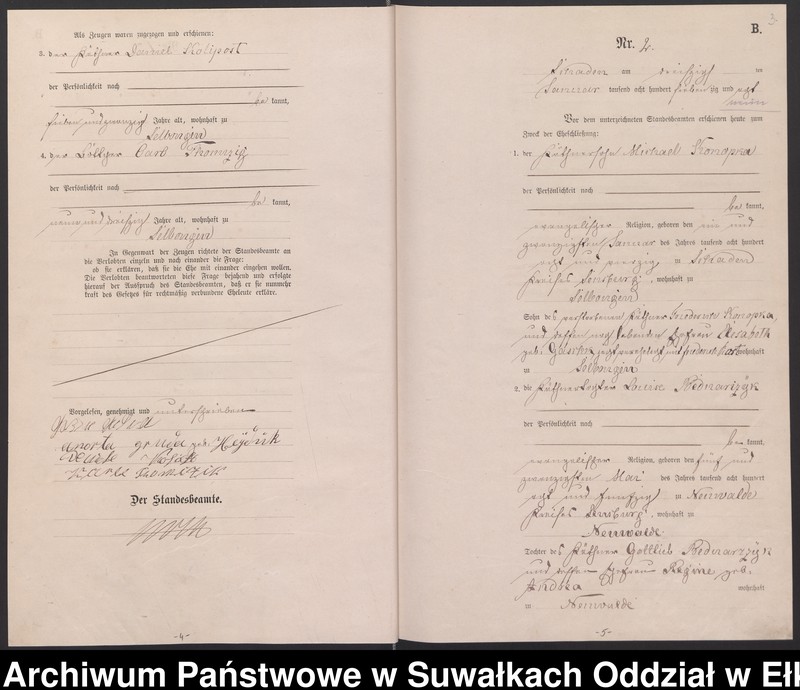 Als Zeugen waren zugezogen und erschienen:
3. der Käthner Kollpost
der Persönlichkeit nach
be kannt,
sieben und zwanzig Jahre alt, wohnhaft zu
Selbongen
4. der Carl Thomzig
der Persönlichkeit nach
be kannt,
neun und dreißig Jahre alt, wohnhaft zu
Selbongen
In Gegenwart der Zeugen richtete der Standesbeamte an
die Verlobten einzeln und nach einander die Frage:
ob sie erklären, daß sie die Ehe mit einander eingehen wollen.
Die Verlobten beantworteten diese Frage bejahend und erfolgte
hierauf der Ausspruch des Standesbeamten, daß er sie nunmehr
kraft des Gesetzes für rechtmäßig verbundene Eheleute erkläre.
Vorgelesen, genehmigt und unterschrieben
geb.
Der Standesbeamte.
-4-
3.
B.
Nr. 2.
am dreißigsten
Januar tausend acht hundert siebenzig und
neun
Vor dem unterzeichneten Standesbeamten erschienen heute zum
Zweck der Eheschließung:
1. der Käthnersohn Michael Konopka
der Persönlichkeit nach
be kannt,
evangelischer Religion, geboren den ein und
zwanzigsten Januar des Jahres tausend acht hundert
acht und vierzig in
Kreises Sensburg, wohnhaft zu
Selbongen
Sohn des verstorbenen Käthner Konopka,
und dessen noch lebenden Ehefrau Elisabeth
geb. wohnhaft
in Selbongen
2. die Käthnertochter Louise Bednarzyk
der Persönlichkeit nach
be kannt,
evangelischer Religion, geboren den fünf und
zwanzigsten Mai des Jahres tausend acht hundert
acht und fünfzig in Neuwalde
Kreises Sensburg, wohnhaft zu
Neuwalde
Tochter des Käthner Gottlieb Bednarzzyk
und dessen Ehefrau Regine geb.
wohnhaft
in Neuwalde
-5-
Archiwum Państwowe w Suwałkach Oddział w Ełk